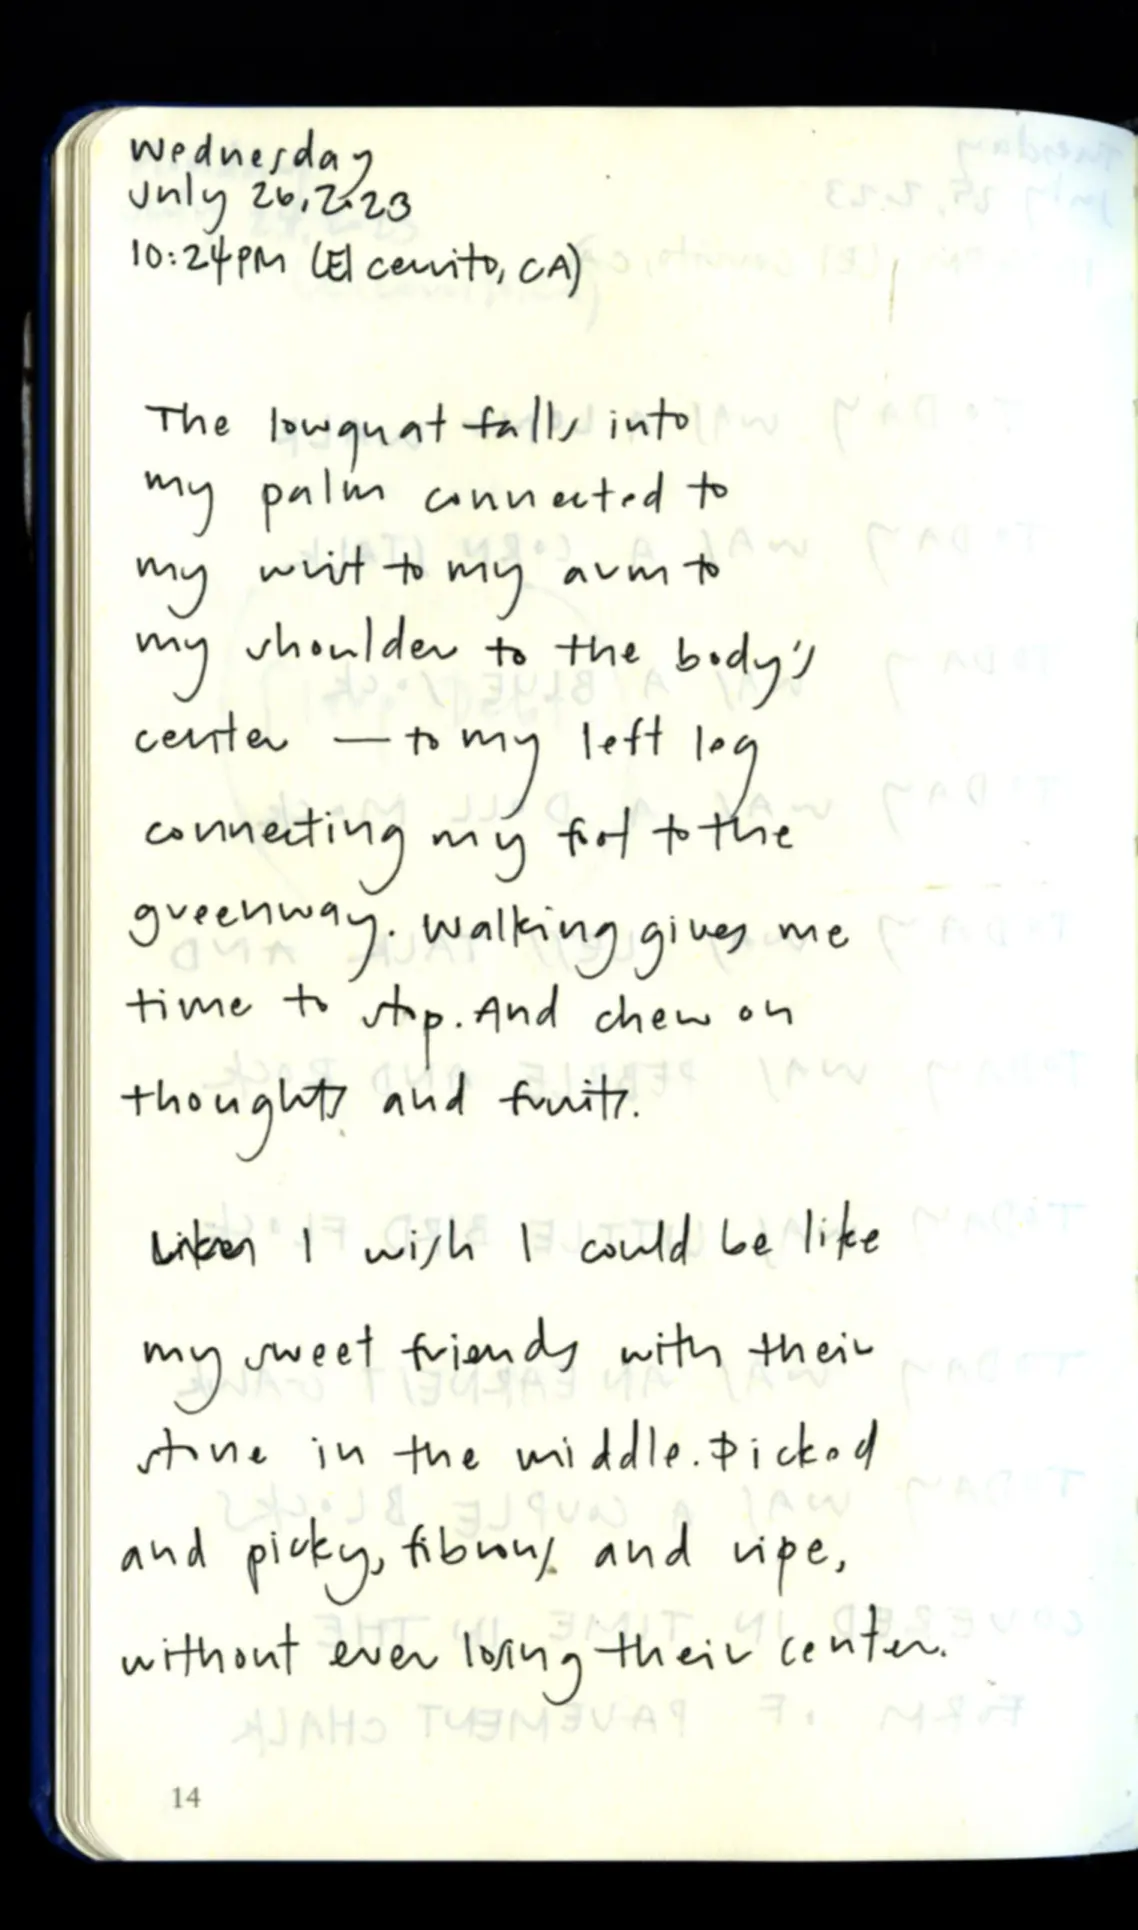 Wednesday
July 26, 2023
10:24PM (El Cerrito, CA)
The lowquat falls into
my palm connected to
my wrist to my arm to
my shoulder to the body's
center — to my left leg
connecting my foot to the
greenway. Walking gives me
time to stop. And chew on
thoughts and fruits.
I wish I could be like
my sweet friends with their
stone in the middle. Picked
and picky, fibrous and ripe,
without ever losing their center.
14